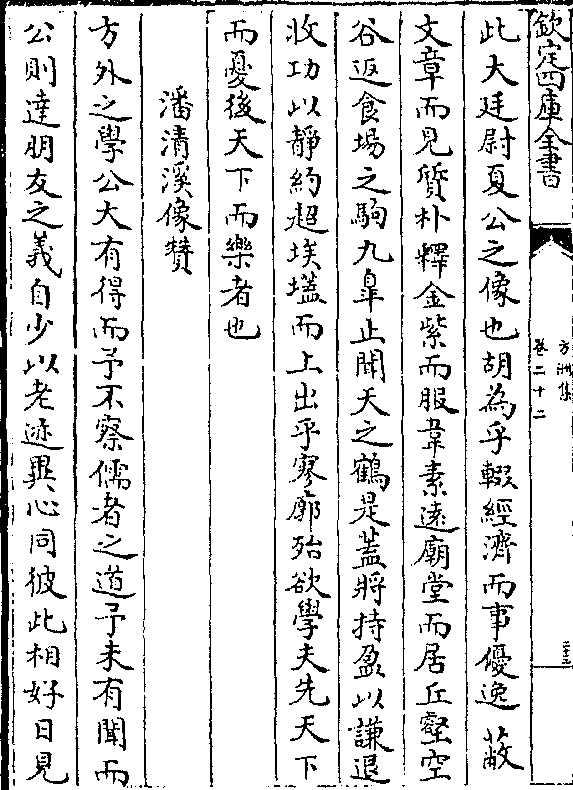 欽定四庫全書
方洲集
卷二十二
此大廷尉夏公之像也胡為乎輟經濟而事優逸蔽
文章而見質朴釋金紫而服韋素遠廟堂而居丘壑空
谷返食場之駒九臯止聞天之鶴是蓋將持盈以謙退
收功以靜約超埃壒而上出乎寥廓殆欲學夫先天下
而憂後天下而樂者也
潘清溪像贊
方外之學公大有得而予不察儒者之道予未有聞而
公則達朋友之義自少以老迹異心同彼此相好日見